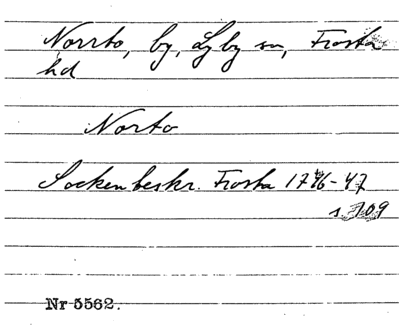 Norrto, by, Lyby sn, Frosta
hd
Norto
Sockenbeskr. Frosta 1746-47
s 709
Nr 5562.